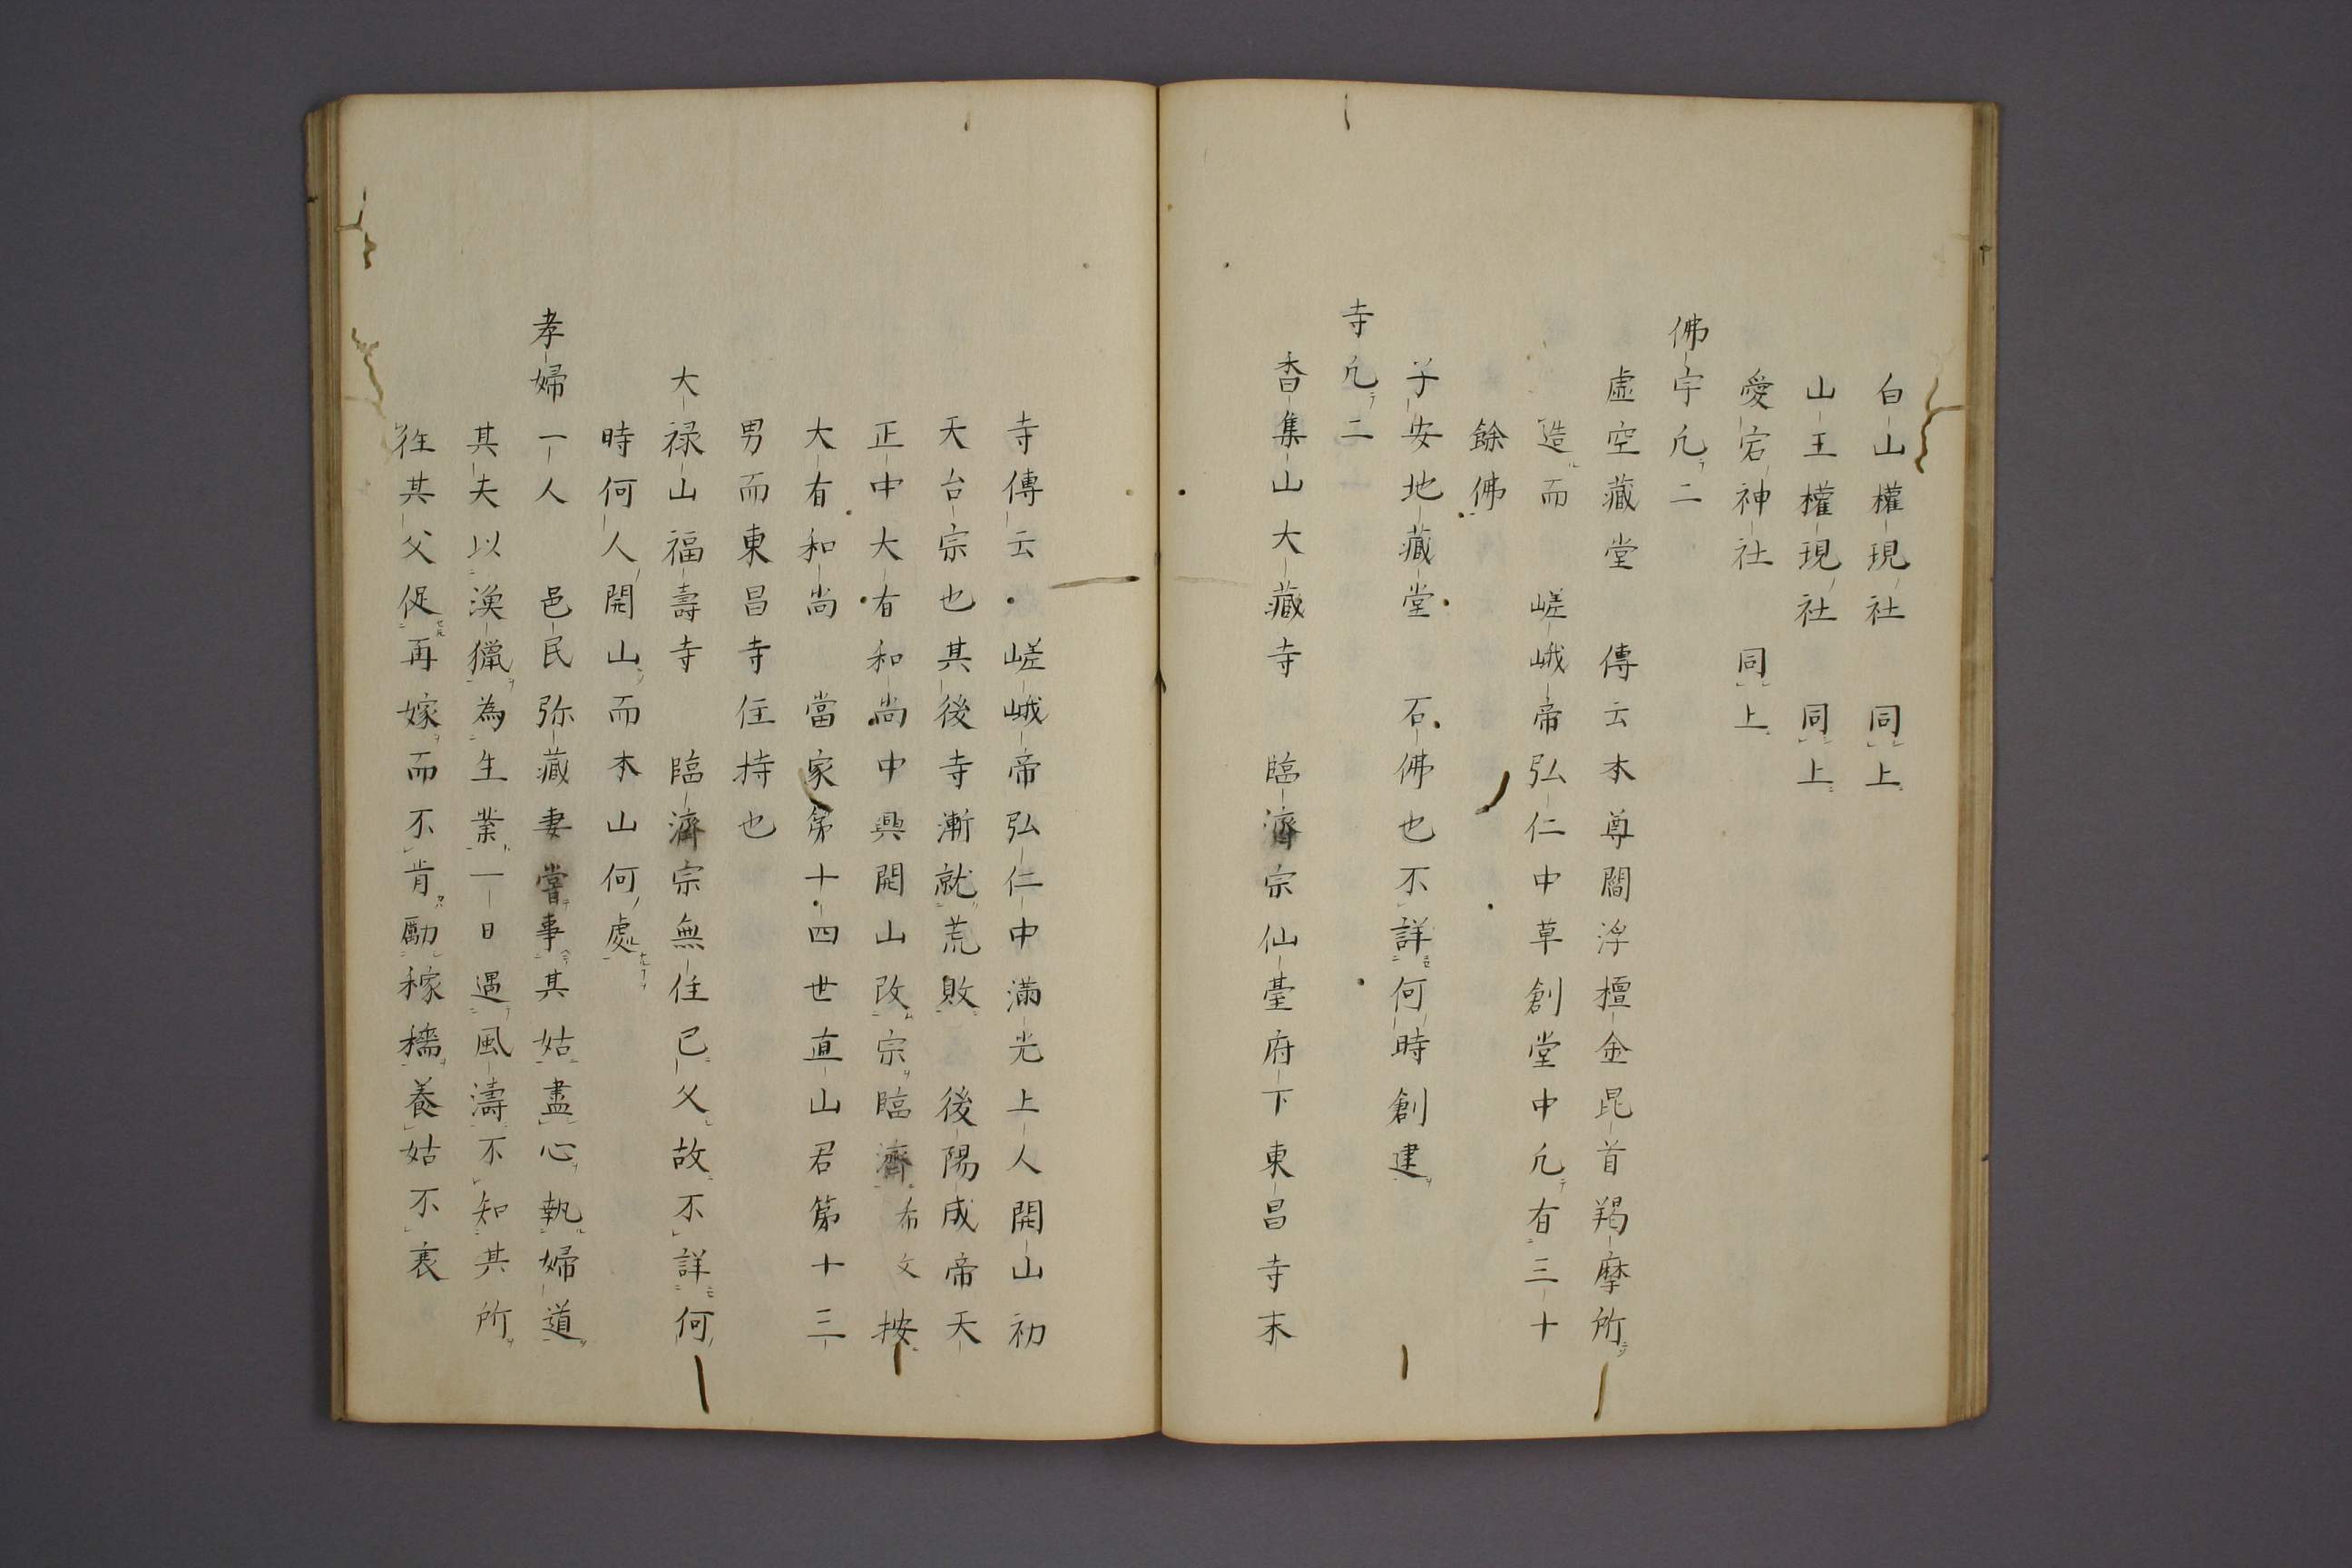 白山權現社　同上
山王權現社　同上
愛宕神社　同上
佛宇凢二
虛空藏堂　傳云本尊閻浮檀金昆首羯摩所
造而　嵯峨帝弘仁中草創堂中凢有三十
餘佛
子安地藏堂　石佛也不詳何時創建
寺凢二
香集山大藏寺　臨濟宗仙臺府下東昌寺末
寺傳云　嵯峨帝弘仁中滿光上人開山初
天台宗也其後寺漸就荒敗　後陽成帝天
正中大有和尚中興開山改宗臨濟布文按
大有和尚　當家第十四世直山君第十三
男而東昌寺住持也
大祿山福壽寺　臨濟宗無住已父故不詳何
時何人開山而本山何處
孝婦一人　邑民弥藏妻嘗事其姑盡心執婦道
其夫以漁獵為生業一日遇風濤不知其所
徃其父促再嫁而不肯勵稼穡養姑不衰